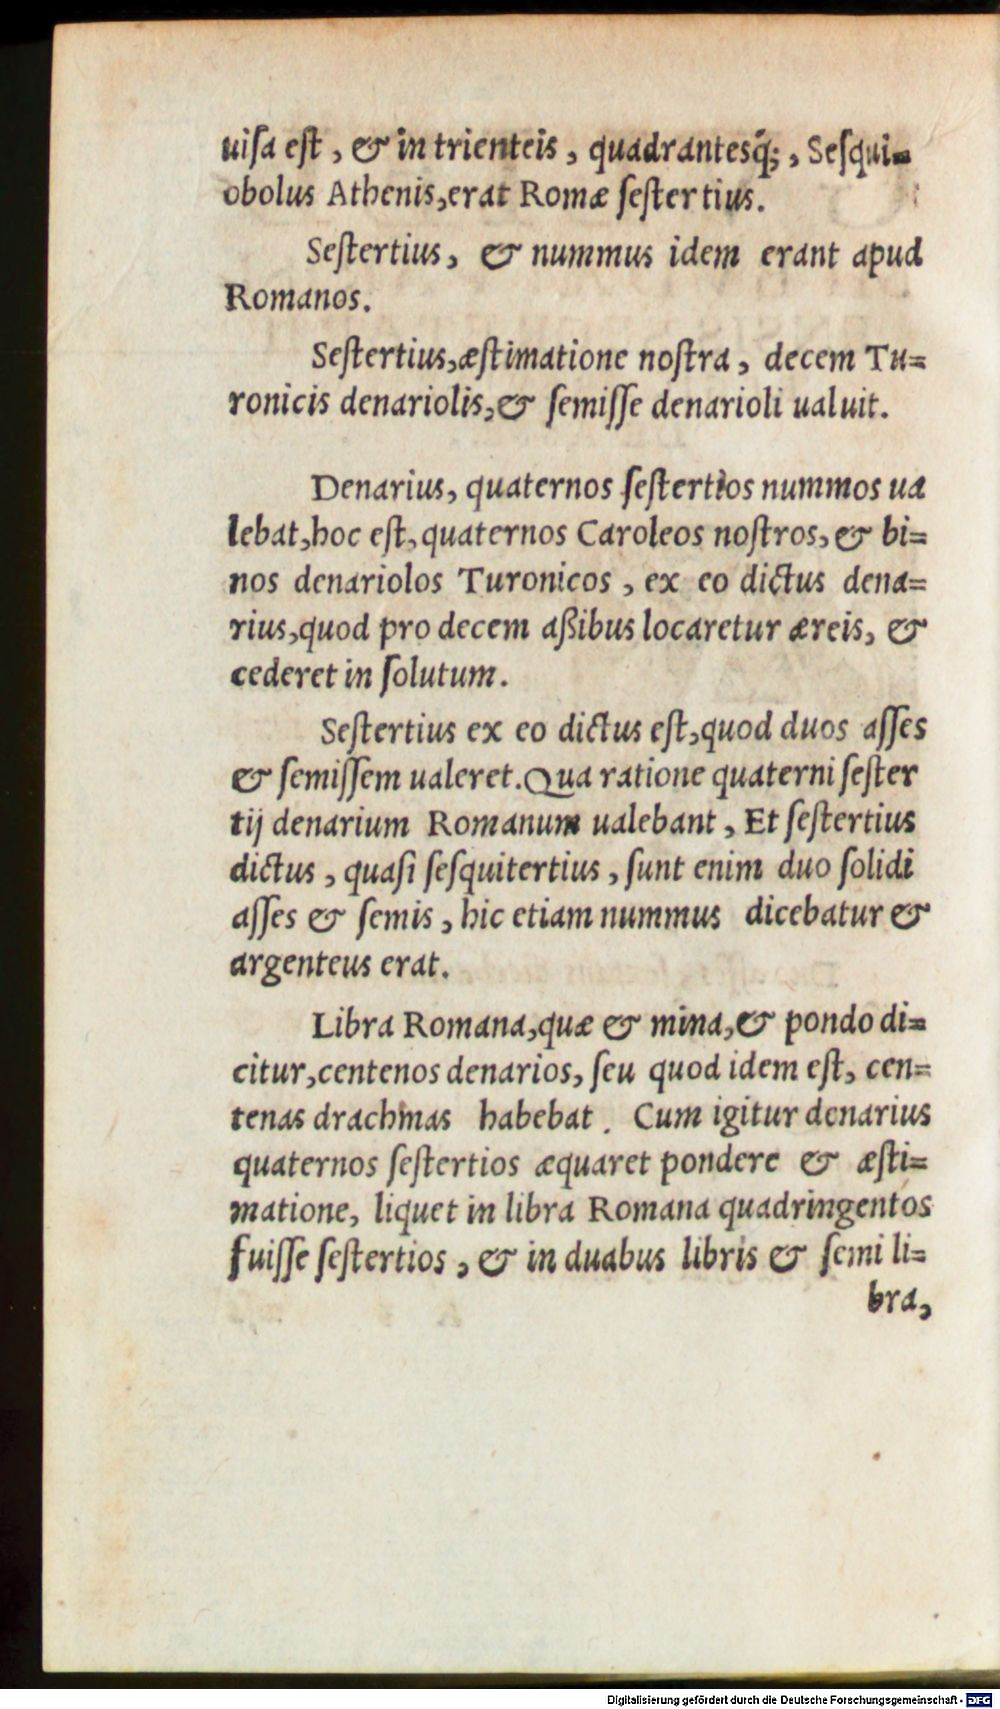 uiſa eſt, & in trienteis, quadrantesq́;, Seſqui-
obolus Athenis, erat Romæ ſeſtertius.
Seſtertius, & nummus idem erant apud
Romanos.
Seſtertius, æſtimatione noſtra, decem Tu-
ronicis denariolis, & ſemiſſe denarioli ualuit.
Denarius, quaternos ſeſtertios nummos ua
lebat, hoc eſt, quaternos Caroleos noſtros, & bi-
nos denariolos Turonicos, ex eo dictus dena-
rius, quod pro decem aßibus locaretur æreis, &
cederet in ſolutum.
Seſtertius ex eo dictus eſt, quod duos aſſes
& ſemiſſem ualeret. Qua ratione quaterni ſeſter
tij denarium Romanum ualebant, Et ſeſtertius
dictus, quaſi ſeſquitertius, ſunt enim duo ſolidi
aſſes & ſemis, hic etiam nummus dicebatur &
argenteus erat.
Libra Romana, quæ & mina, & pondo di-
citur, centenos denarios, ſeu quod idem eſt, cen-
tenas drachmas habebat. Cum igitur denarius
quaternos ſeſtertios æquaret pondere & æſti-
matione, liquet in libra Romana quadringentos
fuiſſe ſeſtertios, & in duabus libris & ſemi li-
bra,
Digitalisierung gefördert durch die Deutsche Forschungsgemeinschaft - DFG